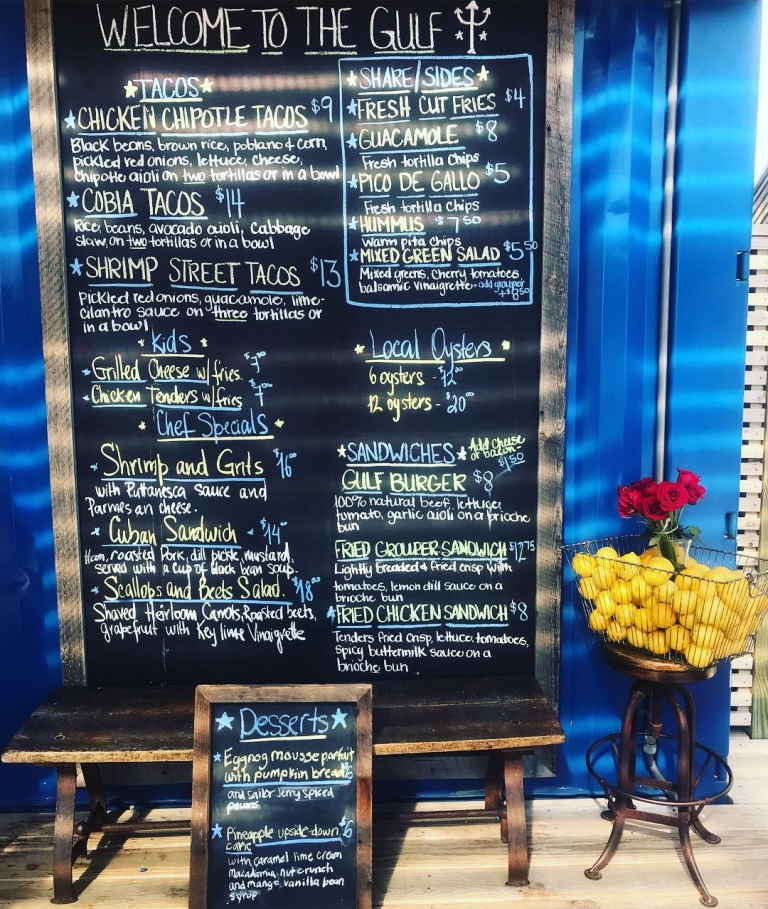 WELCOME TO THE GULF
TACOS
CHICKEN CHIPOTLE TACOS $9
Black beans, brown rice, poblano & corn,
pickled red onions, lettuce, cheese,
chipotle aioli on two tortillas or in a bowl
COBIA TACOS $14
Rice, beans, avocado aioli, Cabbage
slaw, on two tortillas or in a bowl
SHRIMP STREET TACOS $13
Pickled red onions, guacamole, lime-
cilantro sauce on three tortillas or
in a bowl
Kids
Grilled Cheese w/ fries $7.00
Chicken Tenders w/ fries $7.00
Chef Specials
Shrimp and Grits $16
with Puttanesca Sauce and
Parmesan cheese.
Cuban Sandwich $14
Ham, roasted Pork, dill pickle, mustard,
served with a cup of black bean soup.
Scallops and Beets Salad. $18
Shaved Heirloom Carrots, Roasted beets,
grapefruit with Key lime Vinaigrette
SHARE/SIDES
FRESH CUT FRIES $4
GUACAMOLE $8
Fresh tortilla Chips
PICO DE GALLO $5
Fresh tortilla Chips
HUMMUS $7.50
Warm pita chips
MIXED GREEN SALAD $5.50
Mixed greens, cherry tomatoes,
balsamic vinaigrette - add grouper
+$8.50
Local Oysters
6 oysters - $12.00
12 oysters - $20.00
SANDWICHES Add cheese
or bacon - $1.50
GULF BURGER $8
100% natural beef, lettuce,
tomato, garlic aioli on a brioche
bun
FRIED GROUPER SANDWICH $12.75
Lightly Breaded & Fried crisp with
tomatoes, lemon dill sauce on a
brioche bun
FRIED CHICKEN SANDWICH $8
Tenders fried crisp, lettuce, tomatoes,
spicy buttermilk sauce on a
brioche bun
Desserts
Eggnog mousse parfait
with pumpkin bread $6
and sailor Jerry spiced
pecans.
Pineapple upside-down $6
cake
with caramel lime cream
Macadamia nut crunch
and mango, vanilla bean
syrup